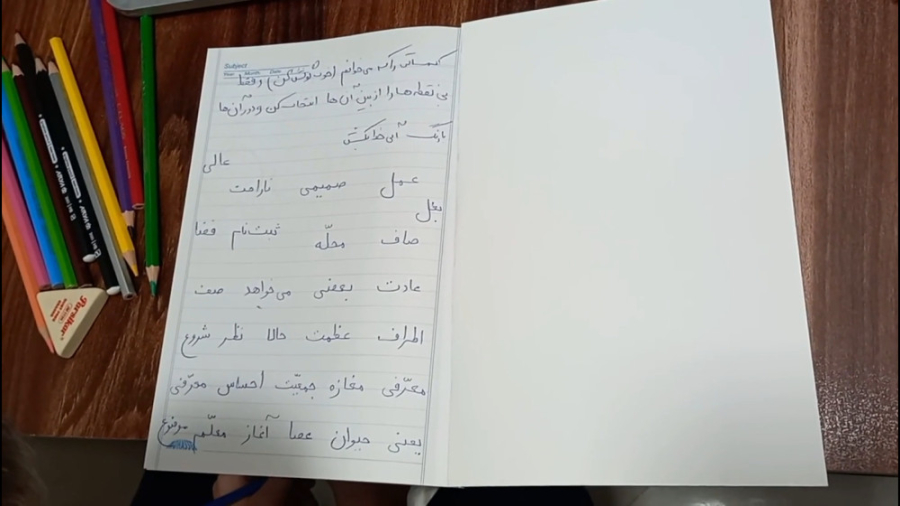 Subject
Year Month Date
کلماتی را که می‌خوانم (خوب گوش کن) و فقط
بی نقطه‌ها را از بین آن‌ها انتخاب کن و دور آن‌ها
با رنگ آبی خط بکش
عالی
عمل صمیمی ناراحت
بغل
صاف محلّه ثبت‌نام فضا
عادت بعضی می‌خواهد صف
اطراف عظمت حالا نظر شروع
معرّفی مغازه جمعیّت احساس معرّفی
یعنی حیوان عصا آغاز معلّم موضوع
Parsikar